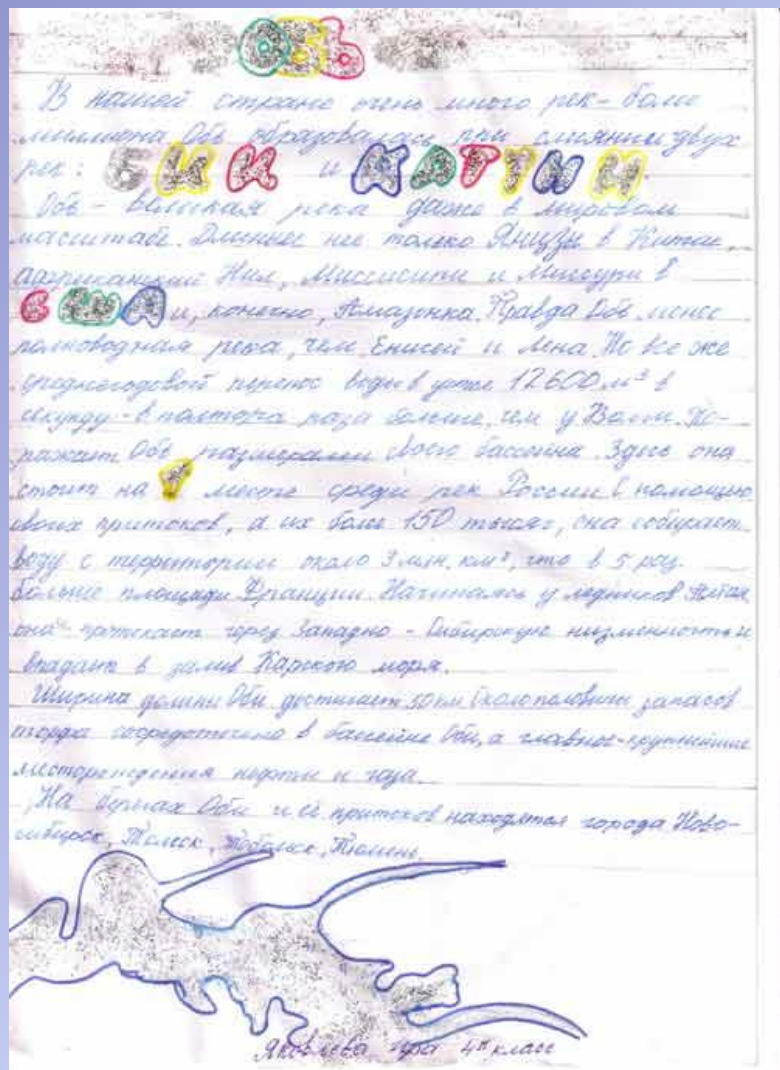 ОБЬ
В нашей стране очень много рек - более
миллиона. Обь образовалась при слиянии двух
рек: БИИ и КАТУНИ.
Обь - великая река даже в мировом
масштабе. Длиннее неё только Янцзы в Китае,
африканский Нил, Миссисипи и Миссури в
США и, конечно, Амазонка. Правда Обь менее
полноводная река, чем Енисей и Лена. Но все же
среднегодовой перенос воды в устье 12600 м³ в
секунду - в полтора раза больше, чем у Волги. По-
ражает Обь размерами своего бассейна. Здесь она
стоит на 1 месте среди рек России. С помощью
своих притоков, а их более 150 тысяч, она собирает
воду с территории около 3 млн. км², что в 5 раз
больше площади Франции. Начинаясь у ледников Алтая,
она протекает через Западно - Сибирскую низменность и
впадает в залив Карского моря.
Ширина долины Оби достигает 50 км. Около половины запасов
торфа сосредоточено в бассейне Оби, а главное - крупнейшие
месторождения нефти и газа.
На берегах Оби и её притоков находятся города Ново-
сибирск, Томск, Тобольск, Тюмень.
Яковлева 4 класс